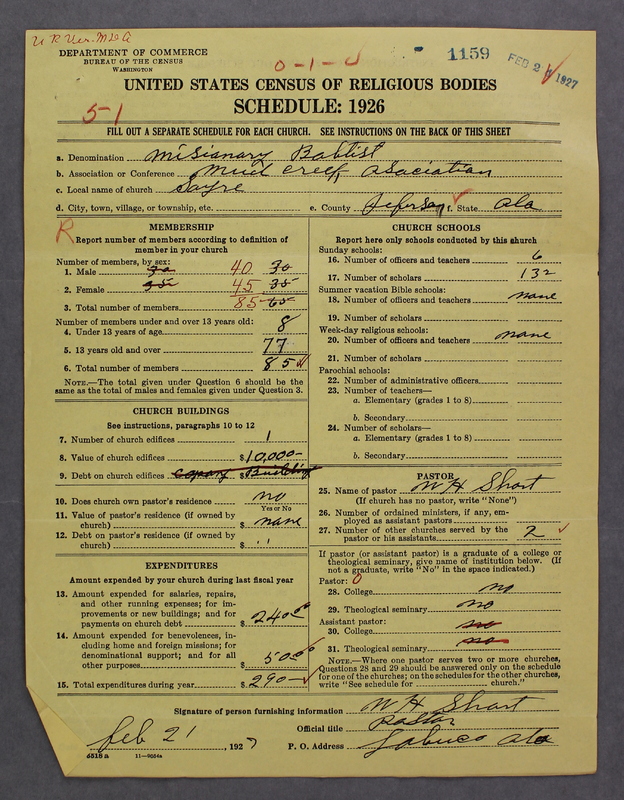 DEPARTMENT OF COMMERCE
BUREAU OF THE CENSUS
WASHINGTON
0-1-0
1159
FEB 2 1927
UNITED STATES CENSUS OF RELIGIOUS BODIES
SCHEDULE: 1926
5-1
FILL OUT A SEPARATE SCHEDULE FOR EACH CHURCH. SEE INSTRUCTIONS ON THE BACK OF THIS SHEET
a. Denomination Missionary Babtist
b. Association or Conference Mud Creek Asociation
c. Local name of church Sayre
d. City, town, village, or township, etc. e. County Jeferson f. State Ala
R
MEMBERSHIP
Report number of members according to definition of member in your church
Number of members, by sex:
1. Male 30 40 30
2. Female 35 45 35
3. Total number of members 85 65
Number of members under and over 13 years old:
4. Under 13 years of age 8
5. 13 years old and over 77
6. Total number of members 85
NOTE.—The total given under Question 6 should be the same as the total of males and females given under Question 3.
CHURCH BUILDINGS
See instructions, paragraphs 10 to 12
7. Number of church edifices 1
8. Value of church edifices $10,000-
9. Debt on church edifices $ Building
10. Does church own pastor's residence no
Yes or No
11. Value of pastor's residence (if owned by church) $ none
12. Debt on pastor's residence (if owned by church) $ ,,
EXPENDITURES
Amount expended by your church during last fiscal year
13. Amount expended for salaries, repairs, and other running expenses; for improvements or new buildings; and for payments on church debt $ 240.00
14. Amount expended for benevolences, including home and foreign missions; for denominational support; and for all other purposes $ 50.00
15. Total expenditures during year $ 290—
CHURCH SCHOOLS
Report here only schools conducted by this church
Sunday schools:
16. Number of officers and teachers 6
17. Number of scholars 132
Summer vacation Bible schools:
18. Number of officers and teachers none
19. Number of scholars
Week-day religious schools:
20. Number of officers and teachers none
21. Number of scholars
Parochial schools:
22. Number of administrative officers
23. Number of teachers—
a. Elementary (grades 1 to 8)
b. Secondary
24. Number of scholars—
a. Elementary (grades 1 to 8)
b. Secondary
PASTOR
25. Name of pastor W H Short
(If church has no pastor, write "None")
26. Number of ordained ministers, if any, employed as assistant pastors
27. Number of other churches served by the pastor or his assistants 2
If pastor (or assistant pastor) is a graduate of a college or theological seminary, give name of institution below. (If not a graduate, write "No" in the space indicated.)
Pastor: 0
28. College no
29. Theological seminary no
Assistant pastor:
30. College no
31. Theological seminary no
NOTE.—Where one pastor serves two or more churches, Questions 28 and 29 should be answered only on the schedule for one of the churches; on the schedules for the other churches, write "See schedule for church."
Signature of person furnishing information W H Short
Official title Pastor
feb 21, 1927 P. O. Address Labuco Ala
6518a 11—9084a